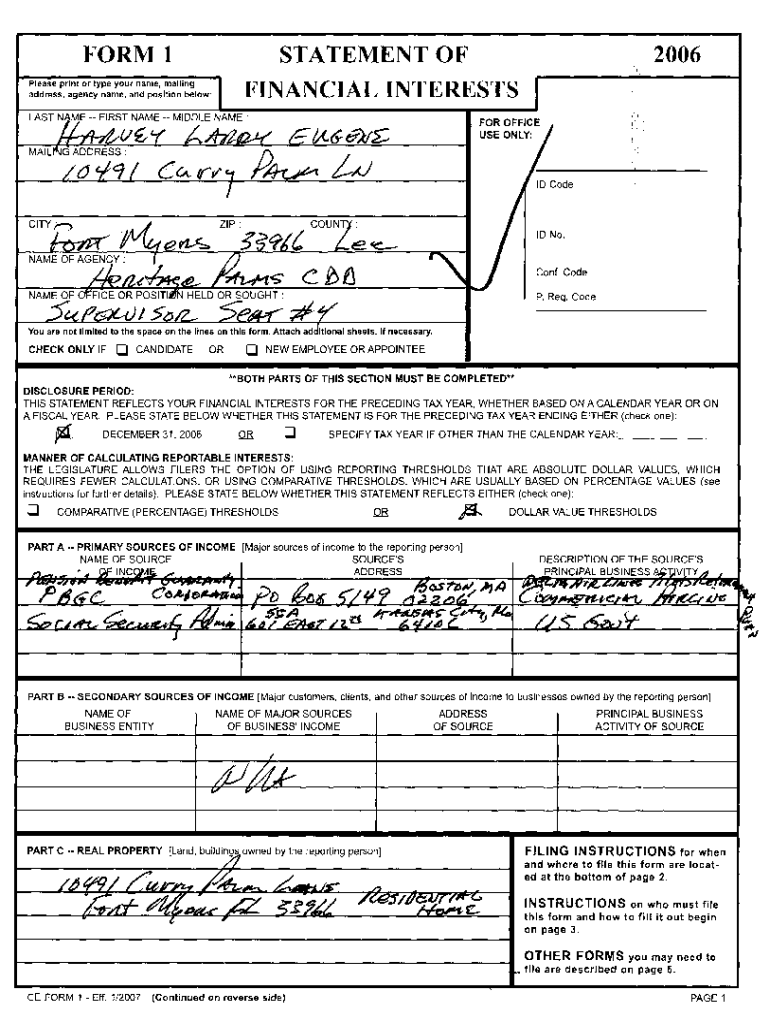 FORM 1 STATEMENT OF 2006
FINANCIAL INTERESTS
Please print or type your name, mailing
address, agency name, and position below:
LAST NAME -- FIRST NAME -- MIDDLE NAME :
HARVEY LARRY EUGENE
MAILING ADDRESS :
10491 Curry PALM LN
CITY : ZIP : COUNTY :
FORT Myers 33966 Lee
NAME OF AGENCY :
Heritage PALMS CDD
NAME OF OFFICE OR POSITION HELD OR SOUGHT :
SUPERVISOR SEAT #4
FOR OFFICE
USE ONLY:
ID Code
ID No.
Conf. Code
P. Req. Code
You are not limited to the space on the lines on this form. Attach additional sheets, if necessary.
CHECK ONLY IF CANDIDATE OR NEW EMPLOYEE OR APPOINTEE
**BOTH PARTS OF THIS SECTION MUST BE COMPLETED**
DISCLOSURE PERIOD:
THIS STATEMENT REFLECTS YOUR FINANCIAL INTERESTS FOR THE PRECEDING TAX YEAR, WHETHER BASED ON A CALENDAR YEAR OR ON
A FISCAL YEAR. PLEASE STATE BELOW WHETHER THIS STATEMENT IS FOR THE PRECEDING TAX YEAR ENDING EITHER (check one):
DECEMBER 31, 2006 OR SPECIFY TAX YEAR IF OTHER THAN THE CALENDAR YEAR:
MANNER OF CALCULATING REPORTABLE INTERESTS:
THE LEGISLATURE ALLOWS FILERS THE OPTION OF USING REPORTING THRESHOLDS THAT ARE ABSOLUTE DOLLAR VALUES, WHICH
REQUIRES FEWER CALCULATIONS, OR USING COMPARATIVE THRESHOLDS, WHICH ARE USUALLY BASED ON PERCENTAGE VALUES (see
instructions for further details). PLEASE STATE BELOW WHETHER THIS STATEMENT REFLECTS EITHER (check one):
COMPARATIVE (PERCENTAGE) THRESHOLDS OR DOLLAR VALUE THRESHOLDS
PART A -- PRIMARY SOURCES OF INCOME [Major sources of income to the reporting person]
NAME OF SOURCE SOURCE'S DESCRIPTION OF THE SOURCE'S
OF INCOME ADDRESS PRINCIPAL BUSINESS ACTIVITY
PENSION BENEFIT GUARANTY BOSTON, MA DELTA AIR LINES PILOTS RETIREMENT PLAN
PBGC CORPORATION PO BOX 5149 02206 COMMERICIAL AIRLINE
SOCIAL Security Admin SSA 601 EAST 12th KANSAS City, Mo 64106 US GOVT
PART B -- SECONDARY SOURCES OF INCOME [Major customers, clients, and other sources of income to businesses owned by the reporting person]
NAME OF NAME OF MAJOR SOURCES ADDRESS PRINCIPAL BUSINESS
BUSINESS ENTITY OF BUSINESS' INCOME OF SOURCE ACTIVITY OF SOURCE
N/A
PART C -- REAL PROPERTY [Land, buildings owned by the reporting person]
10491 Curry Palm LANE
FORT Myers FL 33966 RESIDENTIAL HOME
FILING INSTRUCTIONS for when
and where to file this form are locat-
ed at the bottom of page 2.
INSTRUCTIONS on who must file
this form and how to fill it out begin
on page 3.
OTHER FORMS you may need to
file are described on page 6.
CE FORM 1 - Eff. 1/2007 (Continued on reverse side) PAGE 1